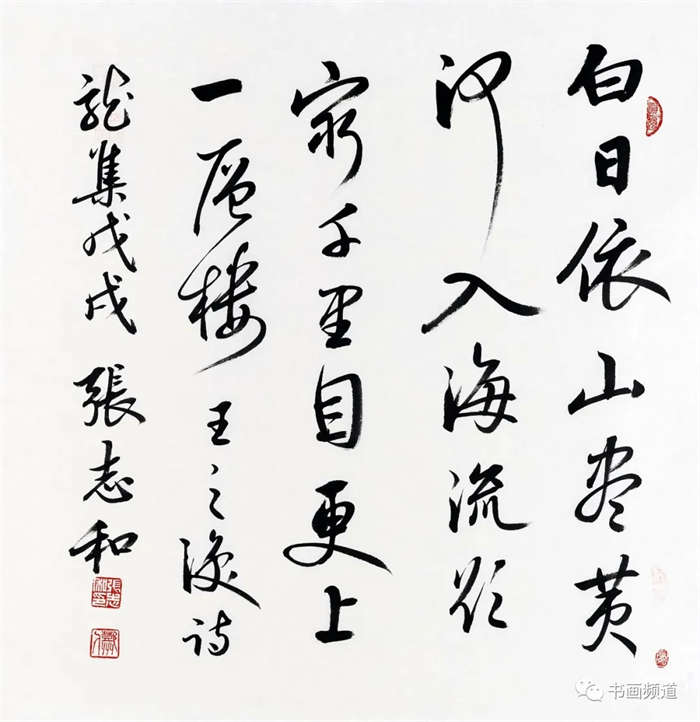 白日依山尽黄
河入海流欲
穷千里目更上
一层楼 王之涣诗
龙集戊戌 張志和
書画频道